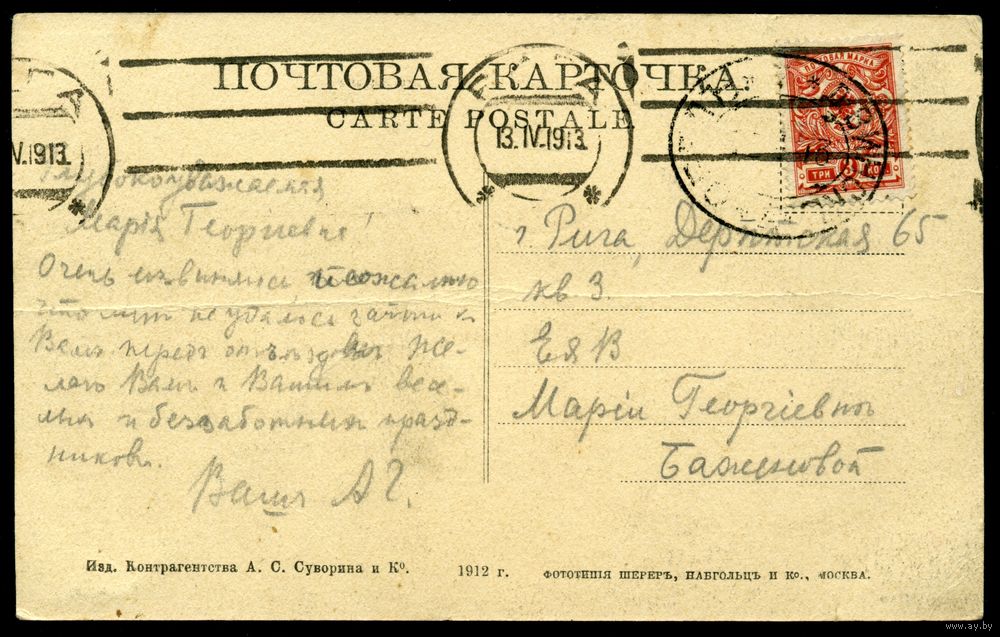 ПОЧТОВАЯ КАРТОЧКА.
CARTE POSTALE
13.IV.1913
IV.1913
ПОЧТОВАЯ МАРКА
ТРИ 3 КОП
Глубокоуважаемая
Марія Георгіевна!
Очень извиняюсь и сожалѣю
что мнѣ не удалось зайти к
Вамъ передъ отъѣздомъ. Же-
лаю Вамъ и Вашимъ весе-
лыхъ и беззаботныхъ празд-
никовъ.
Вашъ АГ.
г. Рига, Дерптская 65
кв 3.
Е я В
Маріи Георгіевнѣ
Баженовой
Изд. Контрагентства А. С. Суворина и Ко.
1912 г.
ФОТОТИПІЯ ШЕРЕРЪ, НАБГОЛЬЦЪ И Ко., МОСКВА.
www.ay.by